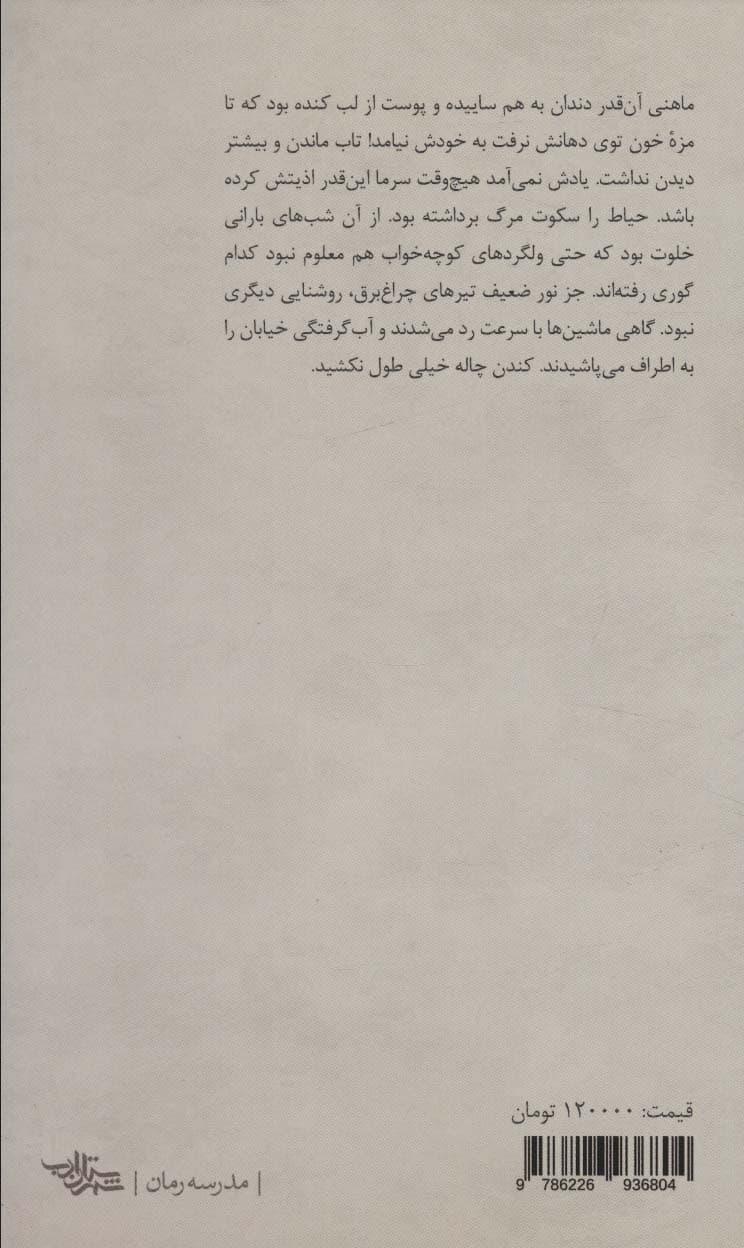 ماهنی آن‌قدر دندان به هم ساییده و پوست از لب کنده بود که تا
مزهٔ خون توی دهانش نرفت به خودش نیامد! تاب ماندن و بیشتر
دیدن نداشت. یادش نمی‌آمد هیچ‌وقت سرما این‌قدر اذیتش کرده
باشد. حیاط را سکوت مرگ برداشته بود. از آن شب‌های بارانی
خلوت بود که حتی ولگردهای کوچه‌خواب هم معلوم نبود کدام
گوری رفته‌اند. جز نور ضعیف تیرهای چراغ‌برق، روشنایی دیگری
نبود. گاهی ماشین‌ها با سرعت رد می‌شدند و آب‌گرفتگی خیابان را
به اطراف می‌پاشیدند. کندن چاله خیلی طول نکشید.
قیمت: ۱۲۰۰۰۰ تومان
9 786226 936804
| مدرسه رمان | شهرستان ادب